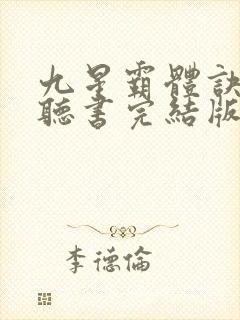 九星霸體訣
聽書完結版
李德倫